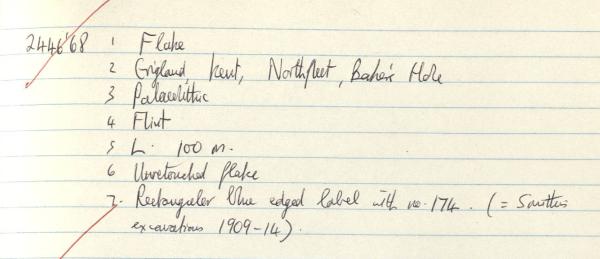 2446'68 1 Flake
2 England, Kent, Northfleet, Baker's Hole
3 Palaeolithic
4 Flint
5 L. 100 m.
6 Unretouched flake
7. Rectangular blue edged label with no. 174. (= Smith's
excavations 1909-14).